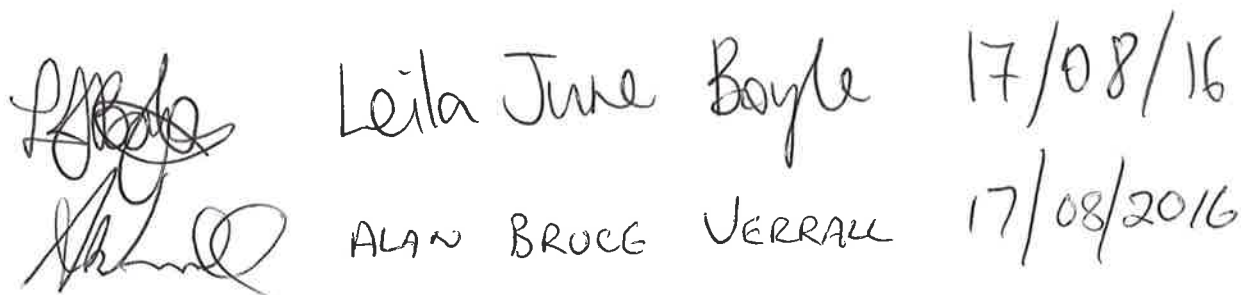 LJBoyle Leila June Boyle 17/08/16
ALAN BRUCE VERRALL 17/08/2016